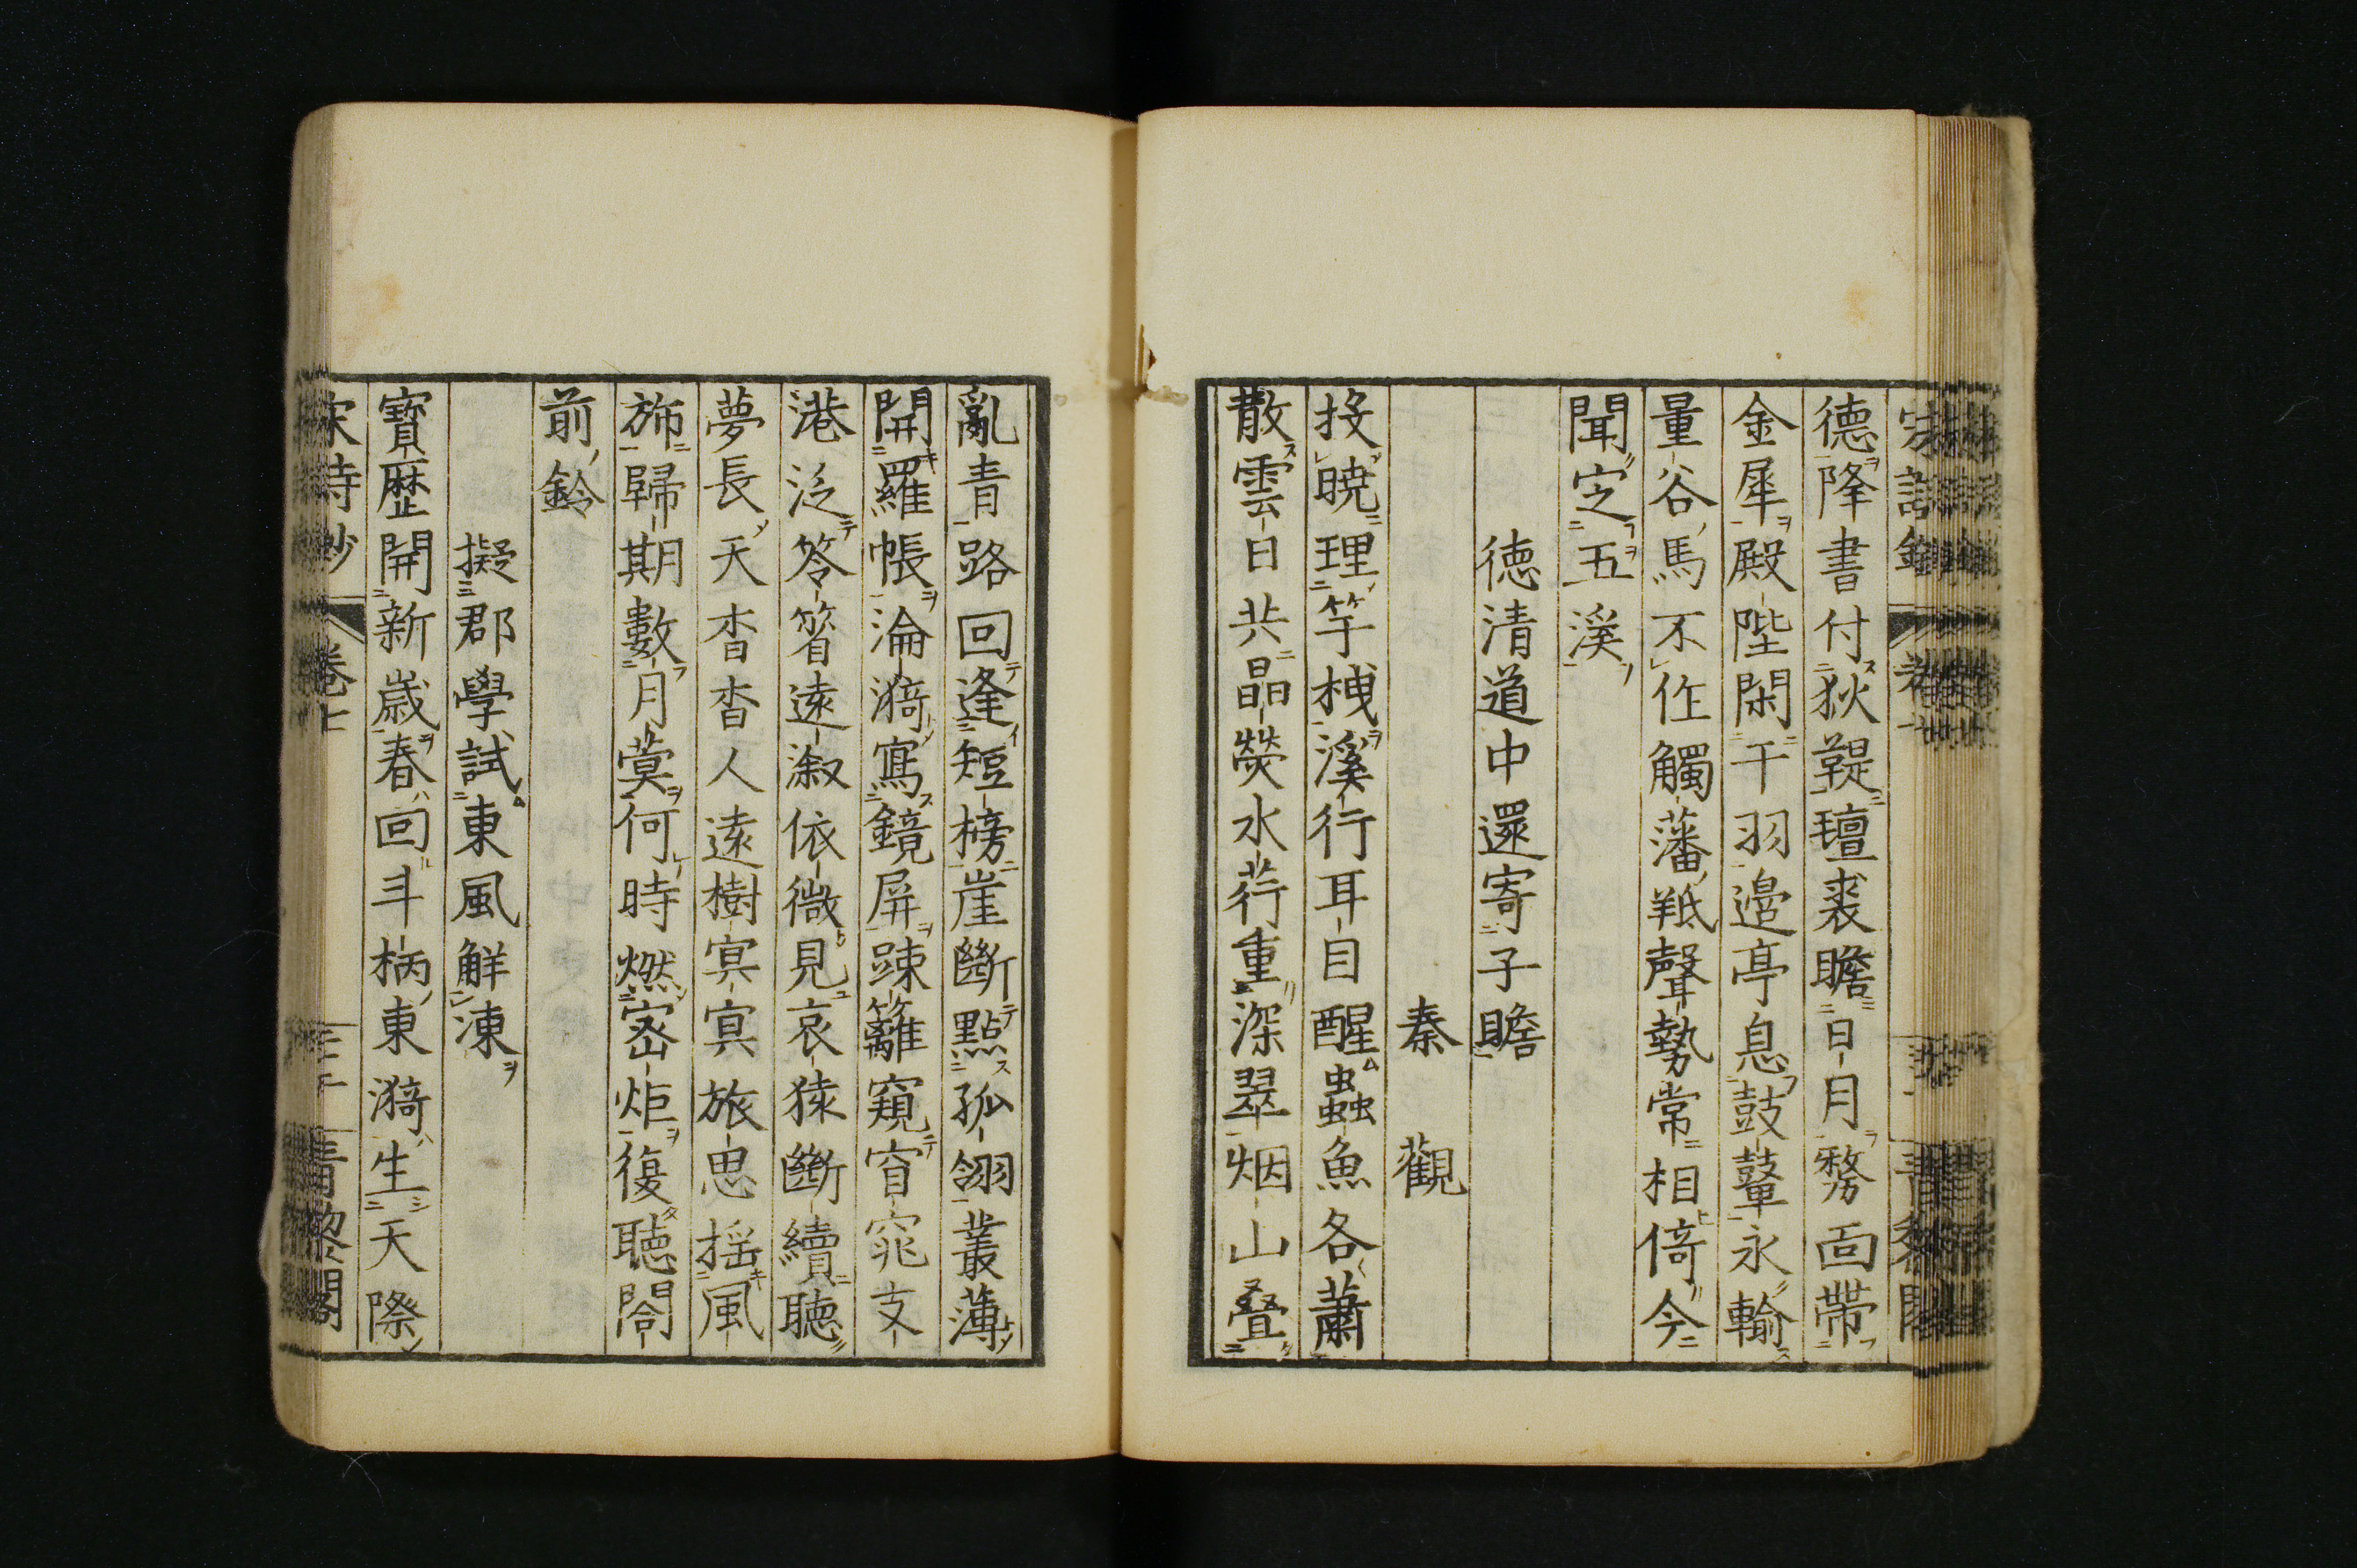 德降書付狄鞮氊裘瞻日月務面帶
金犀殿陛閑干羽邊亭息鼓鼙永輸
量谷馬不作觸藩羝聲勢常相倚今
聞定五溪
德清道中還寄子瞻
秦觀
投曉理竿栧溪行耳目醒蟲魚各蕭
散雲日共晶熒水荇重深翠烟山疊
亂青路回逢短榜崖斷點孤翎叢薄
開羅帳淪漪寫鏡屏踈籬窺窅窕支
港泛笭箵遠溆依微見哀猿斷續聽
夢長天杳杳人遠樹冥冥旅思搖風
斾歸期數月蓂何時燃密炬復聽閤
前鈴
擬郡學試東風解凍
寶歷開新歲春回斗柄東漪生天際
宋詩鈔 卷七 青黎閣